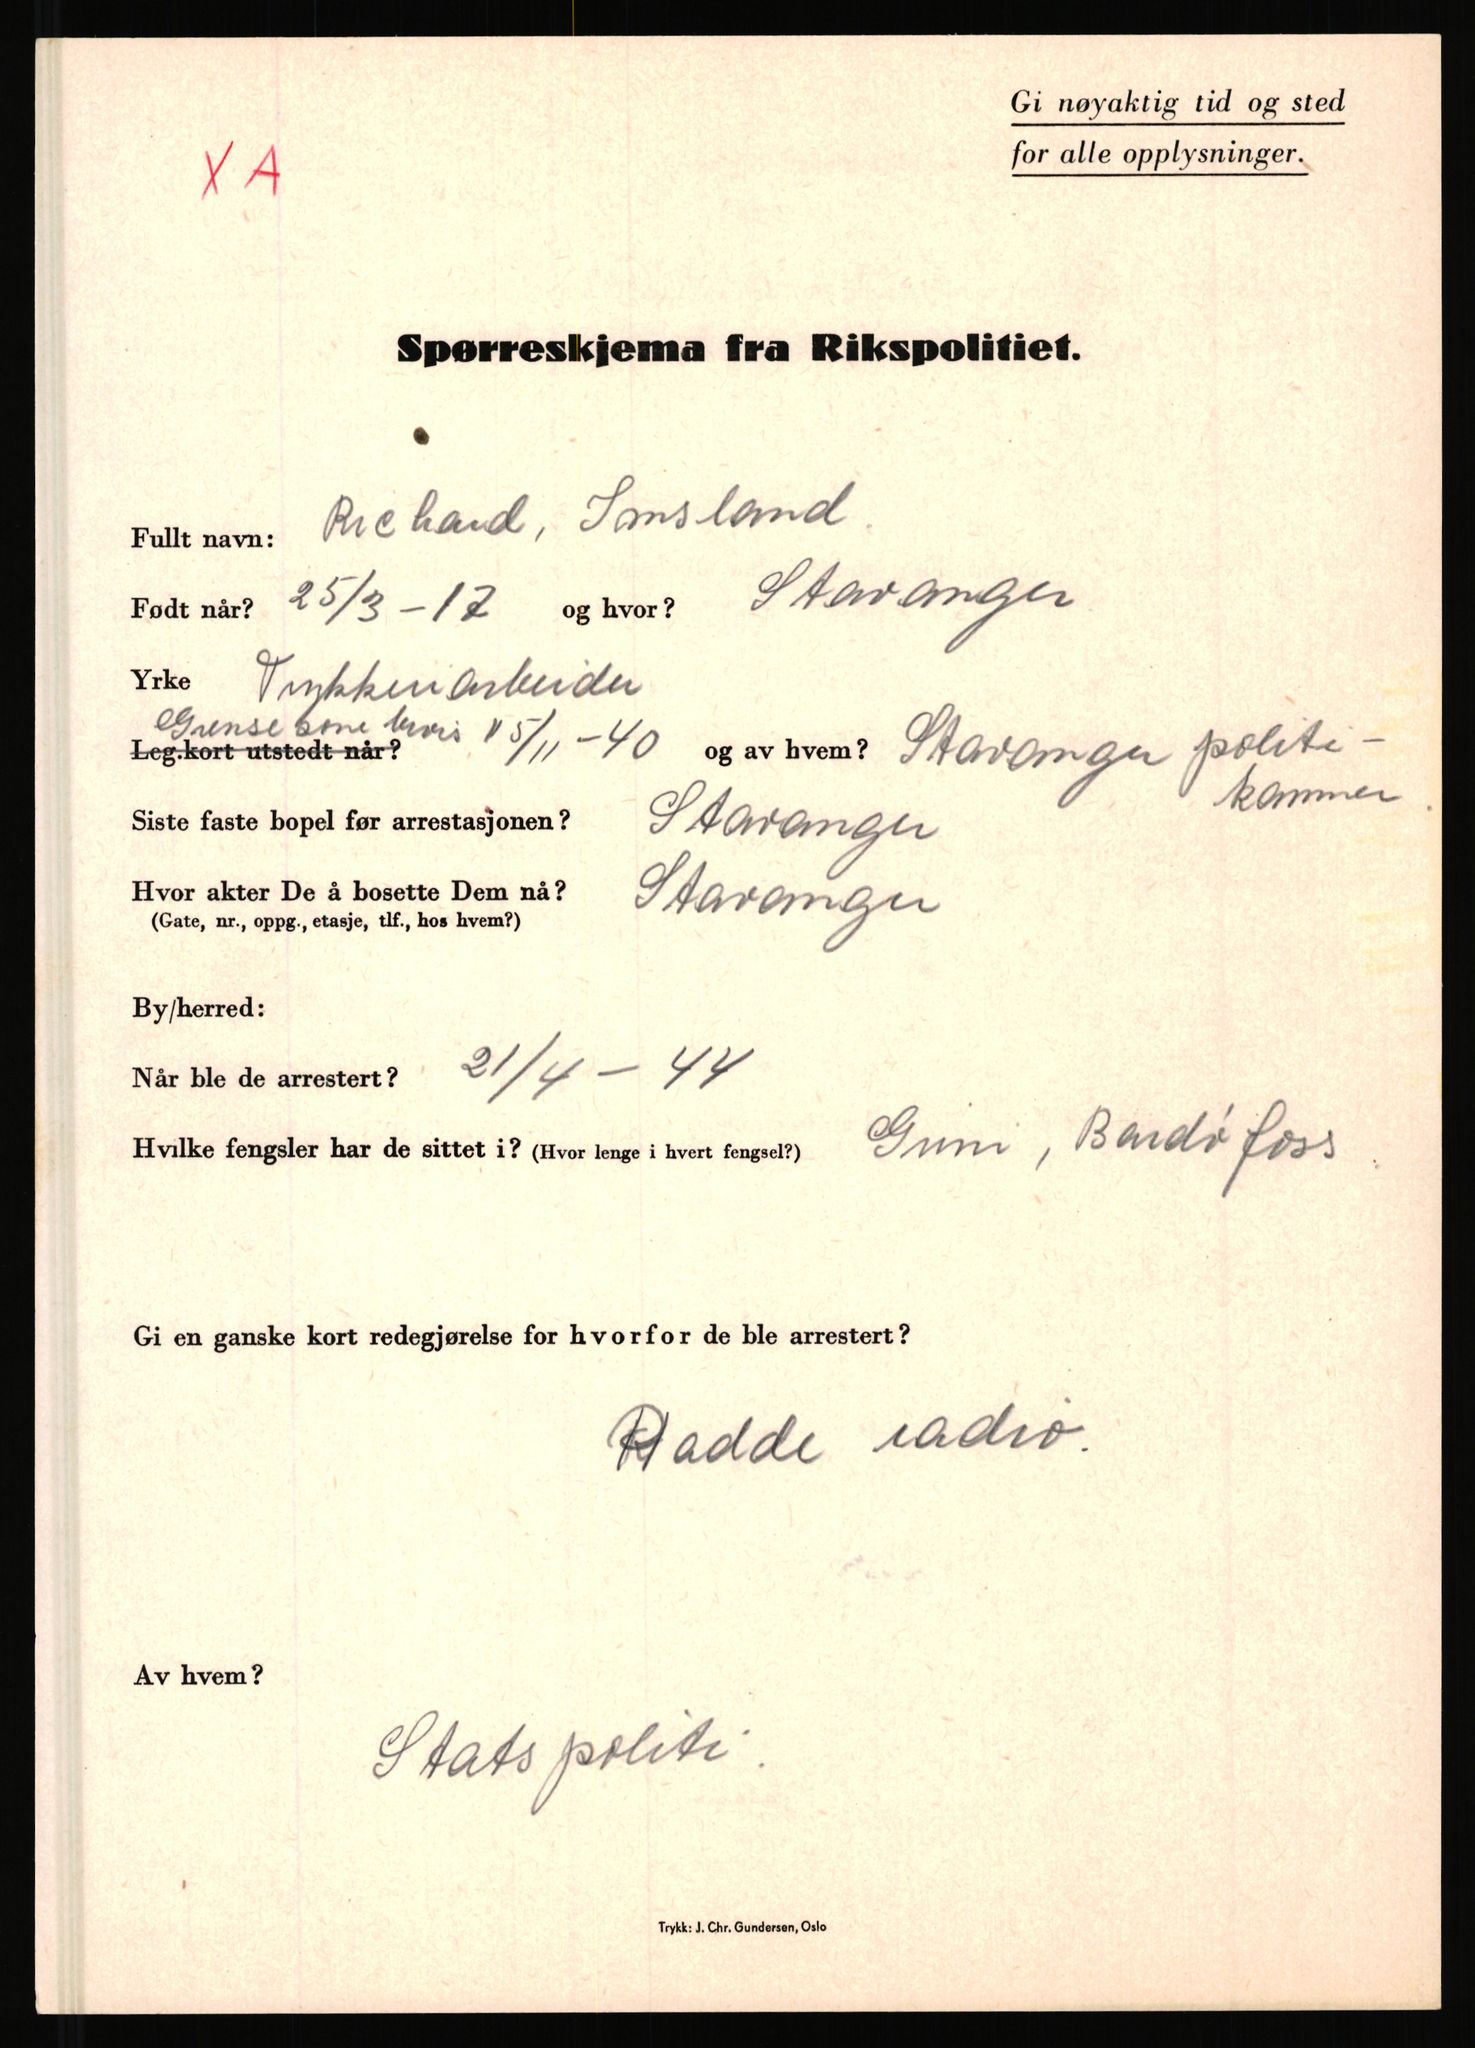 Gi nøyaktig tid og sted
for alle opplysninger.
X A
Spørreskjema fra Rikspolitiet.
Fullt navn: Richard, Imsland.
Født når? 25/3 – 17 og hvor? Stavanger
Yrke Trykkeriarbeider
Grensesone bevis
Leg.kort utstedt når? 15/11 – 40 og av hvem? Stavanger politi-
kammer.
Siste faste bopel før arrestasjonen? Stavanger
Hvor akter De å bosette Dem nå? Stavanger
(Gate, nr., oppg., etasje, tlf., hos hvem?)
By/herred:
Når ble de arrestert? 21/4 – 44
Hvilke fengsler har de sittet i? (Hvor lenge i hvert fengsel?) Grini, Bardøfoss.
Gi en ganske kort redegjørelse for hvorfor de ble arrestert?
Hadde radio.
Av hvem?
Statspoliti.
Trykk: J. Chr. Gundersen, Oslo